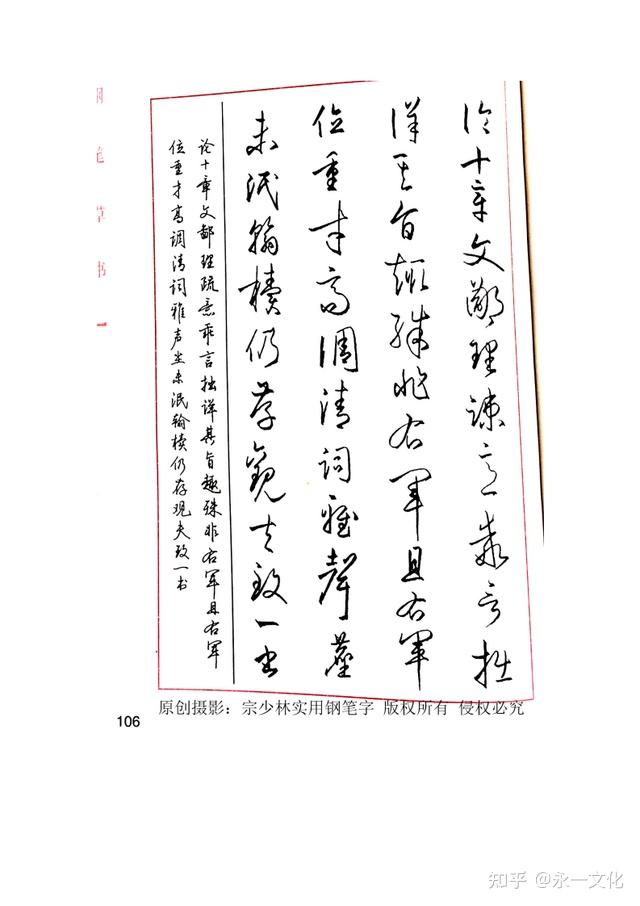 論十章文鄙理疎意乖言拙
詳其旨趣殊非右軍且右軍
位重才高調清詞雅聲塵
未泯翰牘仍存觀夫致一書
论十章文鄙理疏意乖言拙详其旨趣殊非右军且右军
位重才高调清词雅声尘未泯翰牍仍存观夫致一书
草书
原创摄影：宗少林实用钢笔字 版权所有 侵权必究
106
知乎 @永一文化